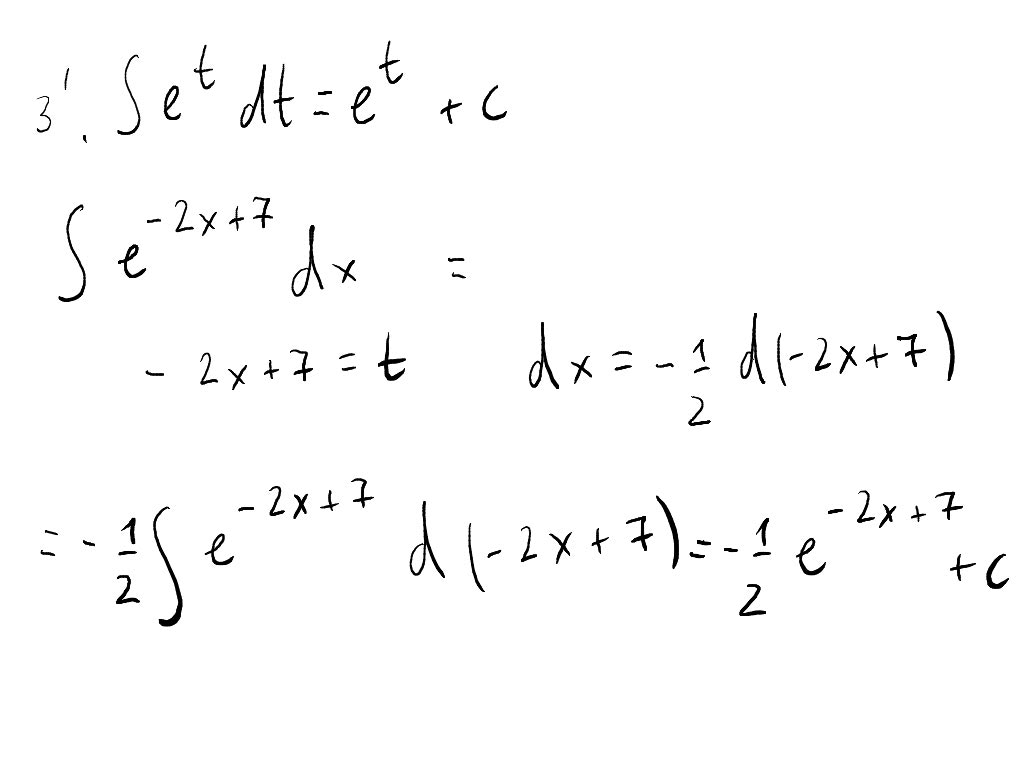 3'. ∫ e^t dt = e^t + c
∫ e^{-2x+7} dx =
-2x+7 = t dx = -1/2 d(-2x+7)
= -1/2 ∫ e^{-2x+7} d(-2x+7) = -1/2 e^{-2x+7} + c